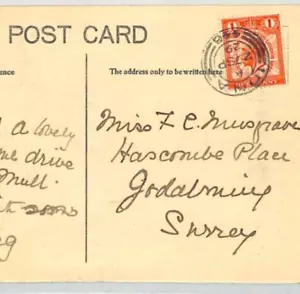 POST CARD
ence
The address only to be written here
1
1
29
d a lovely
me drive
Mull.
Miss F C. Musgrave
Hascombe Place
Godalming
Surrey